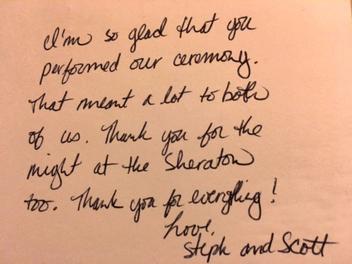 I'm so glad that you
performed our ceremony.
That meant a lot to both
of us. Thank you for the
night at the Sheraton
too. Thank you for everything!
Love,
Steph and Scott